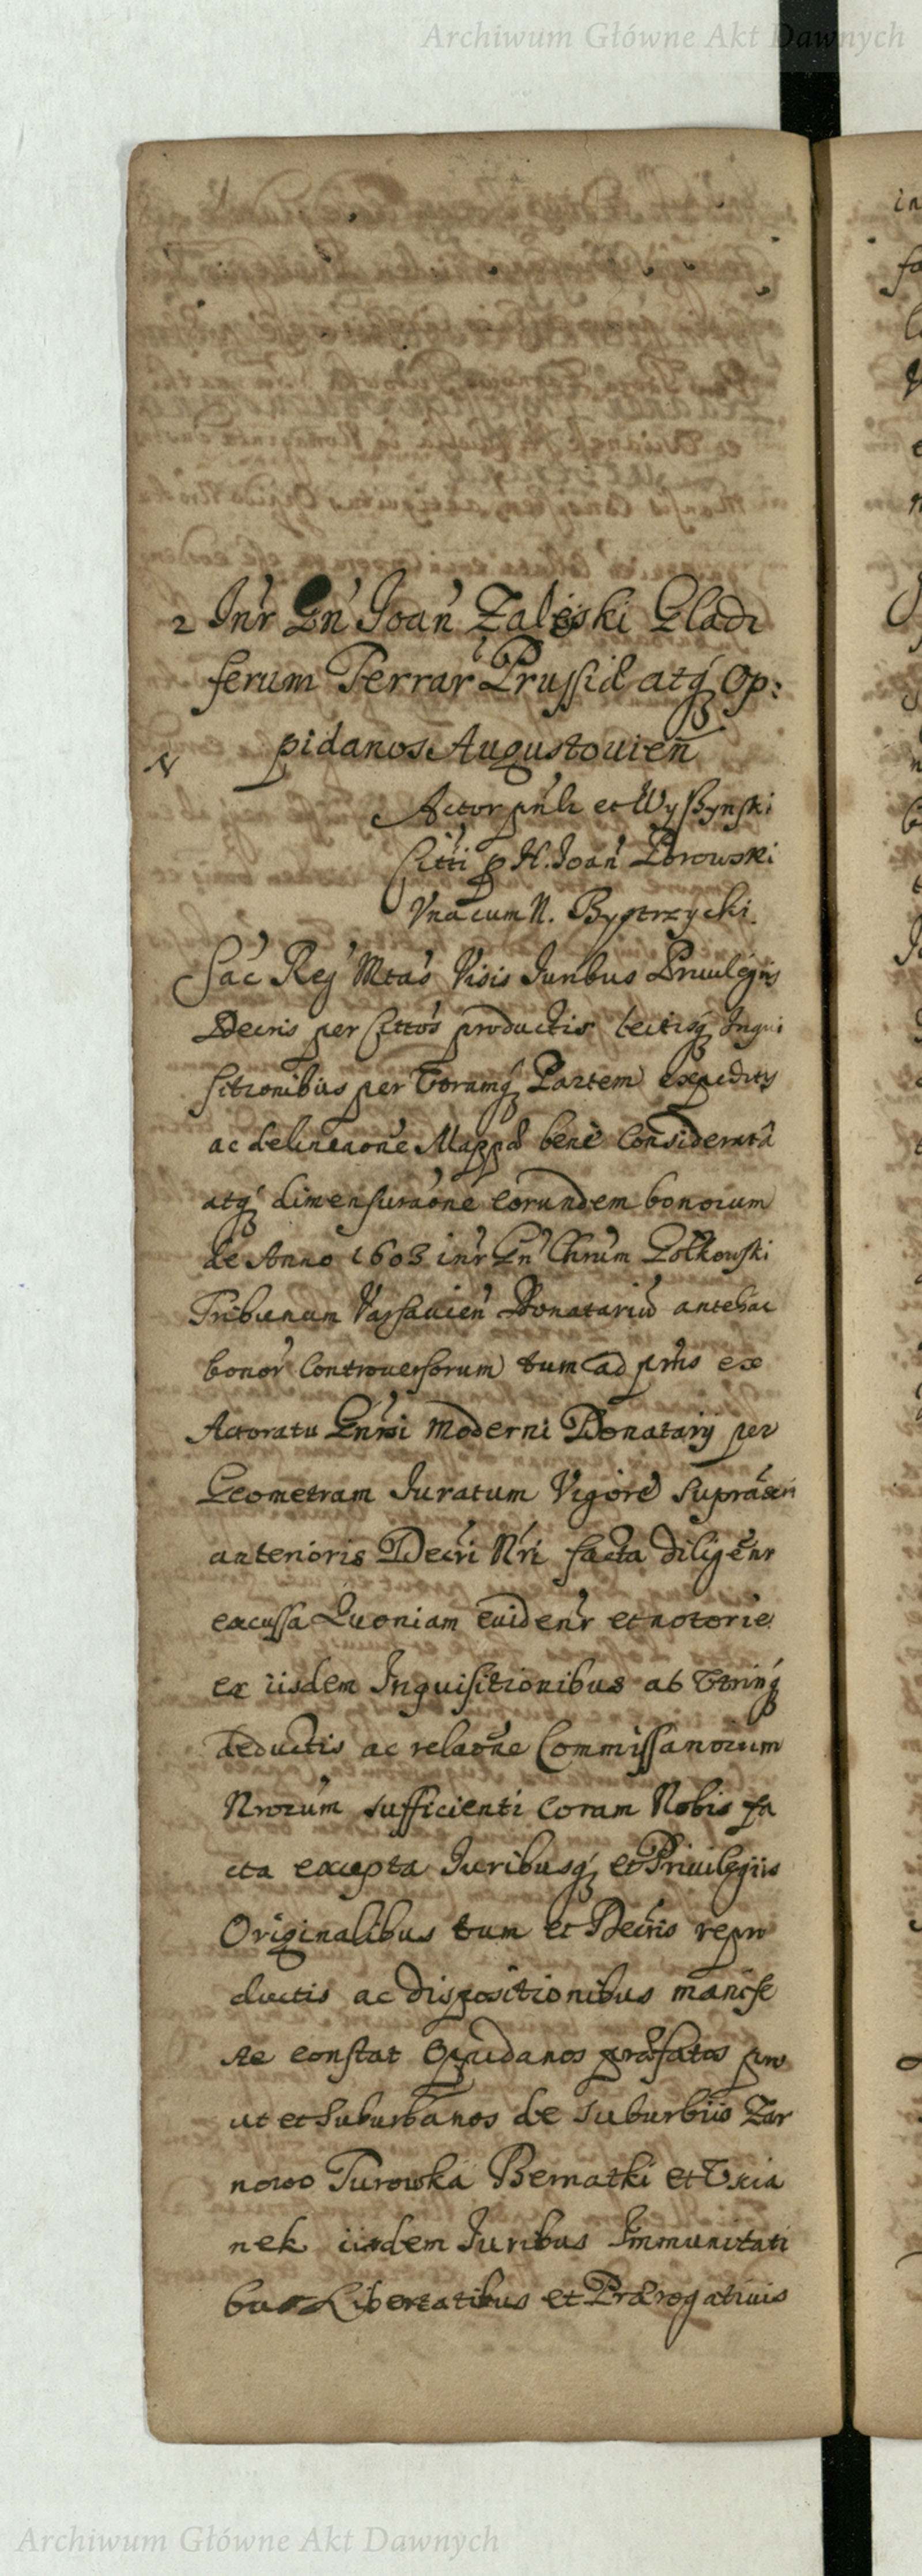 Archiwum Główne Akt Dawnych
2 Inr Gn Joan Zaleski Gladi
ferum Terrar Prussiæ atq Op:
pidanos Augustouien
N
Actor pnle et Wyszynski
Citti p H. Joan Borowski
Vna cum N. Bystrzycki.
Sac Reg Mtas Visis Juribus Priuilegiis
Decris per Cittos productis lectisq Inqui
sitionibus per Vtramq Partem expeditis
ac delineaone Mappæ bene Considerata
atq dimensuraone eorundem bonorum
de Anno 1603 inr Gn Chrum Zolkowski
Tribunum Varsauien Donatariu antehac
bonor Controuersorum tum ad pns ex
Actoratu Gnrosi Moderni Donatarij per
Geometram Juratum Vigore supra
anterioris Decri Nri facta diligenr
excussa Quoniam euidenr et notorie
ex iisdem Inquisitionibus ab Vtrinq
deductis ac relaone Commissariorum
Nrorum sufficienti Coram Nobis fa
cta excepta Juribusq et Priuilegiis
Originalibus tum et Decris repro
ductis ac dispositionibus manife
ste constat Oppidanos præfatos pro
ut et Suburbanos de Suburbiis Zar
nowo Turowka Bernatki et Vscia
nek iisdem Juribus Immunitati
bus Libertatibus et Prærogatiuis
Archiwum Główne Akt Dawnych